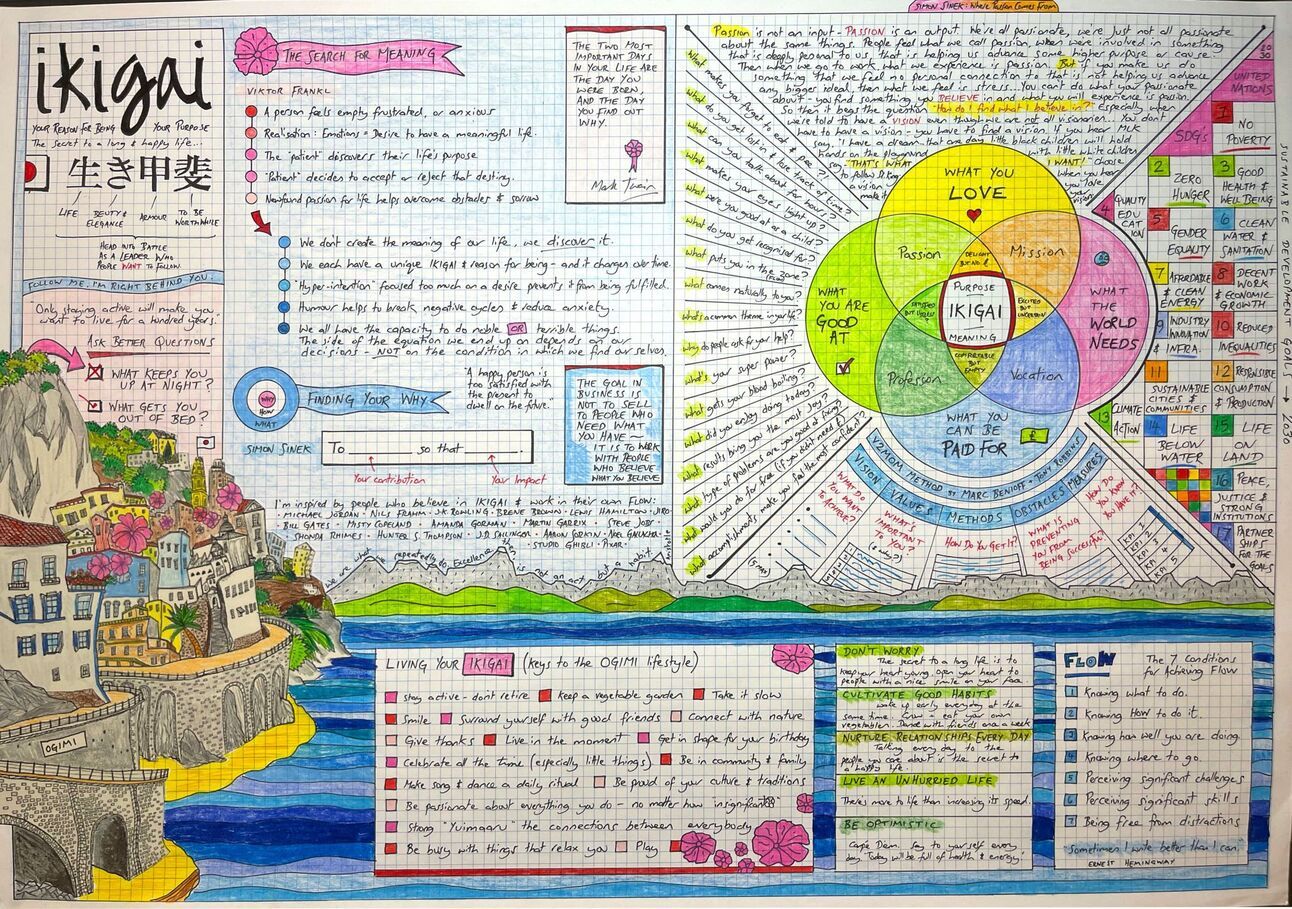 ikigai
YOUR REASON FOR BEING
YOUR PURPOSE
The secret to a long & happy life...
生き甲斐
LIFE
BEUTY & ELEGANCE
ARMOUR
TO BE WORTHWHILE
HEAD INTO BATTLE
AS A LEADER WHO
PEOPLE WANT TO FOLLOW
FOLLOW ME, I'M RIGHT BEHIND YOU.
"Only staying active will make you
want to live for a hundred years."
ASK BETTER QUESTIONS
WHAT KEEPS YOU
UP AT NIGHT?
WHAT GETS YOU
OUT OF BED?
OGIMI
THE SEARCH FOR MEANING
VIKTOR FRANKL
A person feels empty frustrated, or anxious
Realisation: Emotions = Desire to have a meaningful life.
The "patient" discovers their life's purpose
"Patient" decides to accept or reject that destiny.
Newfound passion for life helps overcome obstacles & sorrow
We don't create the meaning of our life, we discover it.
We each have a unique IKIGAI & reason for being - and it changes over time.
"Hyper-intention" focused too much on a desire prevents it from being fulfilled.
Humour helps to break negative cycles & reduce anxiety.
We all have the capacity to do noble OR terrible things.
The side of the equation we end up on depends on our
decisions - NOT on the condition in which we find our selves.
THE TWO MOST
IMPORTANT DAYS
IN YOUR LIFE ARE
THE DAY YOU
WERE BORN,
AND THE DAY
YOU FIND OUT
WHY.
Mark Twain
WHY
HOW
WHAT
FINDING YOUR WHY
"A happy person is
too satisfied with
the present to
dwell on the future."
SIMON SINEK
To ______ so that ______.
Your contribution
Your Impact
THE GOAL IN
BUSINESS IS
NOT TO SELL
TO PEOPLE WHO
NEED WHAT
YOU HAVE ~
IT IS TO WORK
WITH PEOPLE
WHO BELIEVE
WHAT YOU BELIEVE
I'm inspired by people who believe in IKIGAI & work in their own FLOW:
MICHAEL JORDAN · NILS FRAHM · JK ROWLING · BRENE BROWN · LEWIS HAMILTON · JIRO
BILL GATES · MISTY COPELAND · AMANDA GORMAN · MARTIN GARRIX · STEVE JOBS
SHONDA RHIMES · HUNTER S. THOMPSON · J.D. SALINGER · AARON SORKIN · NOEL GALLAGHER
STUDIO GHIBLI · PIXAR
We are what we repeatedly do. Excellence then is not an act, but a habit. Aristotle
SIMON SINEK: Where Passion Comes From
Passion is not an input - PASSION is an output. We're all passionate, we're just not all passionate
about the same things. People feel what we call passion, when we're involved in something
that is deeply personal to us, that is helping us advance some higher purpose or cause.
Then when we go to work, what we experience is passion. But if you make us do
something that we feel no personal connection to that is not helping us advance
any bigger ideal, then what we feel is stress. You can't do what your passionate
about - you find something you BELIEVE in and what you will experience is passion.
So then it begs the question "How do I find what I believe in?" Especially when
we're told to have a VISION even though we are not all visionaries. You don't
have to have a vision - you have to find a vision. If you hear MLK
say, "I have a dream that one day little black children will hold
hands on the playground with little white children
say "THAT'S WHAT I WANT!" choose
What makes you forget to eat & pee?
What do you get lost in & lose track of time?
What can you talk about for hours?
What makes your eyes light up?
What were you good at as a child?
What do you get recognised for?
What puts you in the zone? (FLOW)
What comes naturally to you?
What's a common theme in your life?
Why do people ask for your help?
What's your super power?
What gets your blood boiling?
What did you enjoy doing today?
What results bring you the most joy?
What type of problems are you good at solving?
What would you do for free (if you didn't need $)?
What accomplishments make you feel the most confident?
WHAT YOU
LOVE
Passion
DELIGHT BUT NO $
Mission
WHAT YOU ARE GOOD AT
SATISFIED BUT USELESS
PURPOSE
IKIGAI
MEANING
EXCITED BUT UNCERTAIN
WHAT THE WORLD NEEDS
COMFORTABLE BUT EMPTY
Profession
Vocation
WHAT YOU
CAN BE
PAID FOR
£
V2MOM METHOD by MARC BENIOFF + TONY ROBBINS
VISION
VALUES
METHODS
OBSTACLES
MEASURES
WHAT DO YOU WANT TO ACHIEVE?
WHAT'S IMPORTANT TO YOU?
HOW DO YOU GET IT?
WHAT IS PREVENTING YOU FROM BEING SUCCESSFUL?
HOW DO YOU KNOW YOU HAVE IT?
(& why?)
KPI 1
KPI 2
KPI 3
KPI 4
KPI 5
2030
UNITED NATIONS
SDG's
SUSTAINABLE DEVELOPMENT GOALS → 2030
1 NO POVERTY
2 ZERO HUNGER
3 GOOD HEALTH & WELL BEING
4 QUALITY EDUCATION
5 GENDER EQUALITY
6 CLEAN WATER & SANITATION
7 AFFORDABLE & CLEAN ENERGY
8 DECENT WORK & ECONOMIC GROWTH
9 INDUSTRY INNOVATION & INFRA.
10 REDUCED INEQUALITIES
11 SUSTAINABLE CITIES & COMMUNITIES
12 RESPONSIBLE CONSUMPTION & PRODUCTION
13 CLIMATE ACTION
14 LIFE BELOW WATER
15 LIFE ON LAND
16 PEACE, JUSTICE & STRONG INSTITUTIONS
17 PARTNERSHIPS FOR THE GOALS
LIVING YOUR IKIGAI (keys to the OGIMI lifestyle)
stay active - don't retire
Keep a vegetable garden
Take it slow
Smile
Surround yourself with good friends
Connect with nature
Give thanks
Live in the moment
Get in shape for your birthday
Celebrate all the time (especially little things)
Be in community & family
Make song & dance a daily ritual
Be proud of your culture & traditions
Be passionate about everything you do - no matter how insignificant
Strong "Yuimaaru" the connections between everybody
Be busy with things that relax you
Play
DON'T WORRY
The secret to a long life is to
keep your heart young. Open your heart to
people with a nice smile on your face.
CULTIVATE GOOD HABITS
wake up early everyday at the
same time. Grow + eat your own
vegetables. Dance with friends once a week
NURTURE RELATIONSHIPS EVERY DAY
Talking every day to the
people you care about is the secret to
a happy life.
LIVE AN UNHURRIED LIFE
There's more to life than increasing its speed.
BE OPTIMISTIC
Carpe Diem. Say to yourself every
day, "Today will be full of health & energy!"
FLOW
The 7 Conditions
for Achieving Flow
1 Knowing what to do.
2 Knowing HOW to do it.
3 Knowing how well you are doing.
4 Knowing where to go.
5 Perceiving significant challenges
6 Perceiving significant skills
7 Being free from distractions
"Sometimes I write better than I can."
ERNEST HEMINGWAY